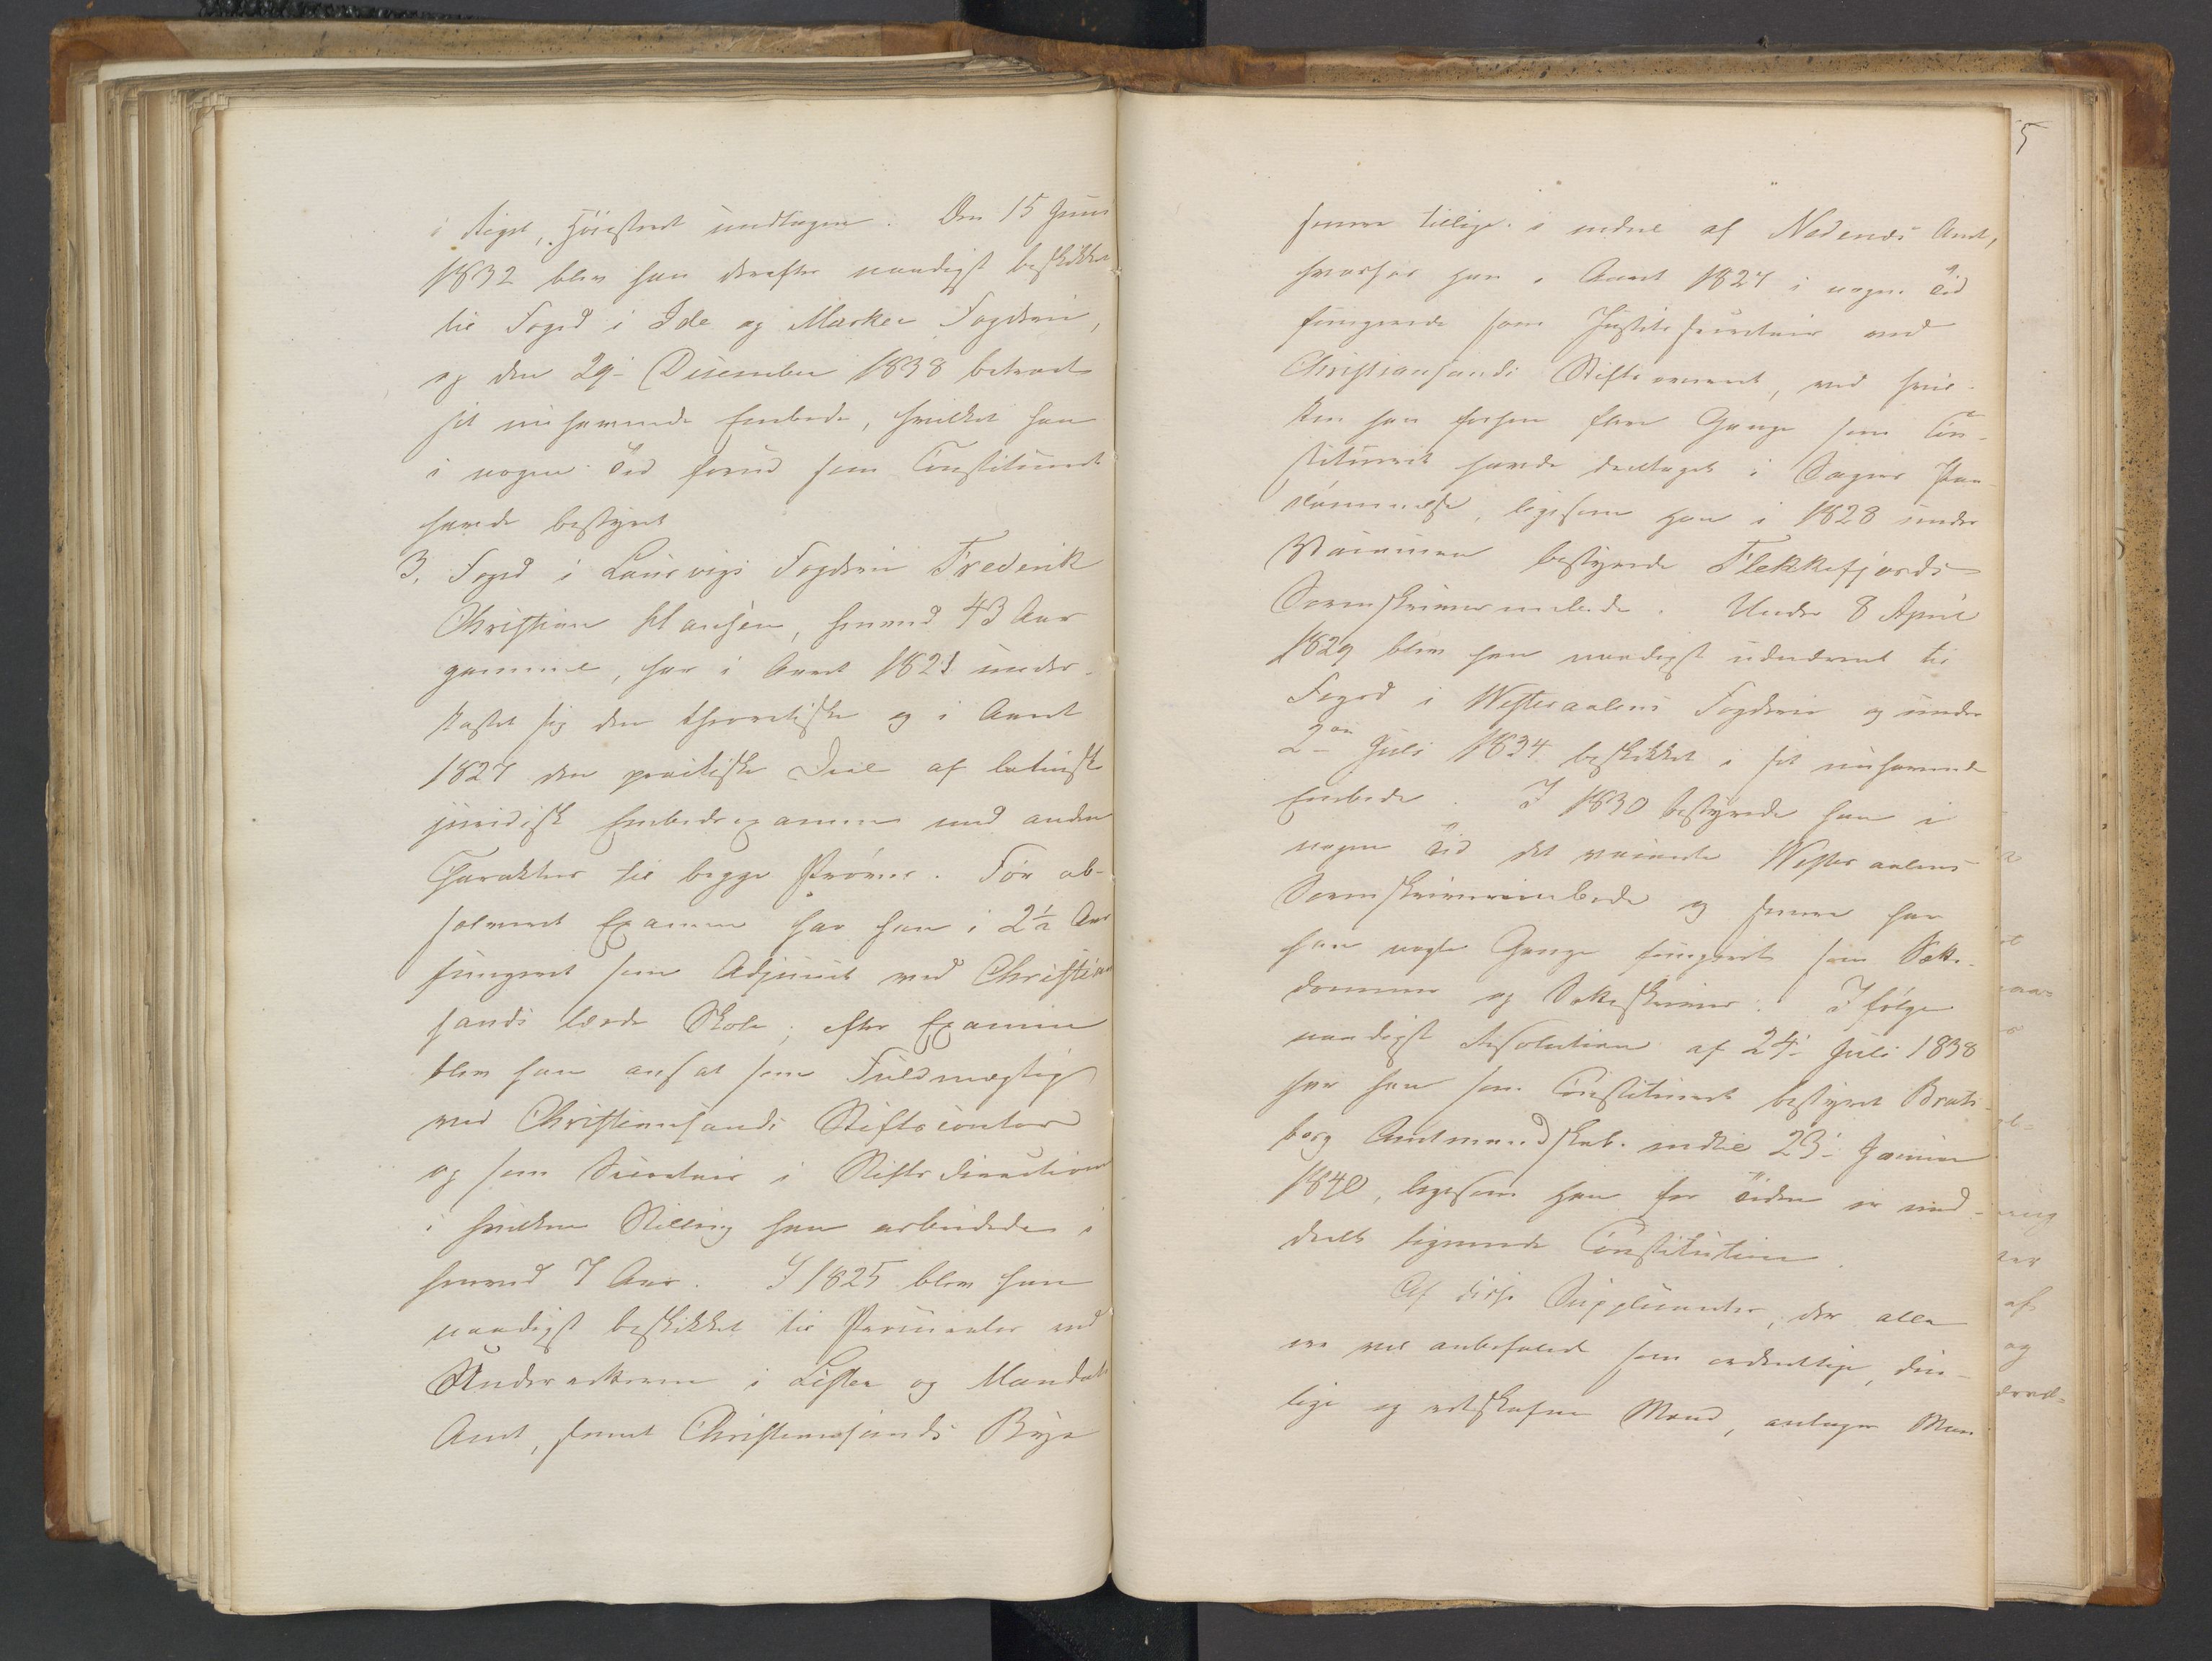 i Riget, Høiesteret undtagen. Den 15 Juni
1832 blev han derefter naadigst beskikket
til Foged i Ide og Marker Fogderie,
og den 29. December 1838 betroet
sit nuhavende Embede, hvilket han
i nogen Tid forud som Constitueret
havde bestyret
3. Foged i Laurvigs Fogderie Frederik
Christian Hansen, henved 43 Aar
gammel, har i Aaret 1821 under-
kastet sig den theoretiske og i Aaret
1827 den practiske Deel af latinsk
juridisk Embedsexamen med anden
Charakter til begge Prøver. Før ab-
solveret Examen har han i 2½ Aar
fungeret som Adjunct ved Christian
sands lærde Skole; efter Examen
blev han ansat som Fuldmægtig
ved Christiansands Stiftscontor
og som Secretair i Stiftsdirectionen
i hvilken Stilling han arbeidede i
henved 7 Aar. I 1825 blev han
naadigst beskikket til Procurator ved
Underretterne i Lister og Mandals
Amt, samt Christiansands Bye
senere tillige i endeel af Nedenæs Amt,
hvorhos han i Aaret 1827 i nogen Tid
fungerede som Justitssecretair ved
Christiansands Stiftsoverret, ved hvil-
ken han forhen flere Gange som Con-
stitueret havde deeltaget i Sagers Paa-
dømmelse, ligesom han i 1828 under
Vacancen bestyrede Flekkefjords
Sorenskriverembede. Under 8 April
1829 blev han naadigst udnævnt til
Foged i Westeraalens Fogderie og under
2den Juli 1834 beskikket i sit nuhavende
Embede. I 1830 bestyrede han i
nogen Tid det vacante Westeraalens
Sorenskriverembede og senere har
han nogle Gange fungeret som Sætte-
dommer og Sætteskriver. Ifølge
naadigst Resolution af 24. Juli 1838
har han som Constitueret bestyret Brats-
berg Amtmandskab indtil 23. Januar
1840, ligesom han for Tiden er med-
deelt lignende Constitution.
Af disse Supplicanter, der alle
ere vel anbefalede som ordentlige, due-
lige og retskafne Mænd, antager Man
5